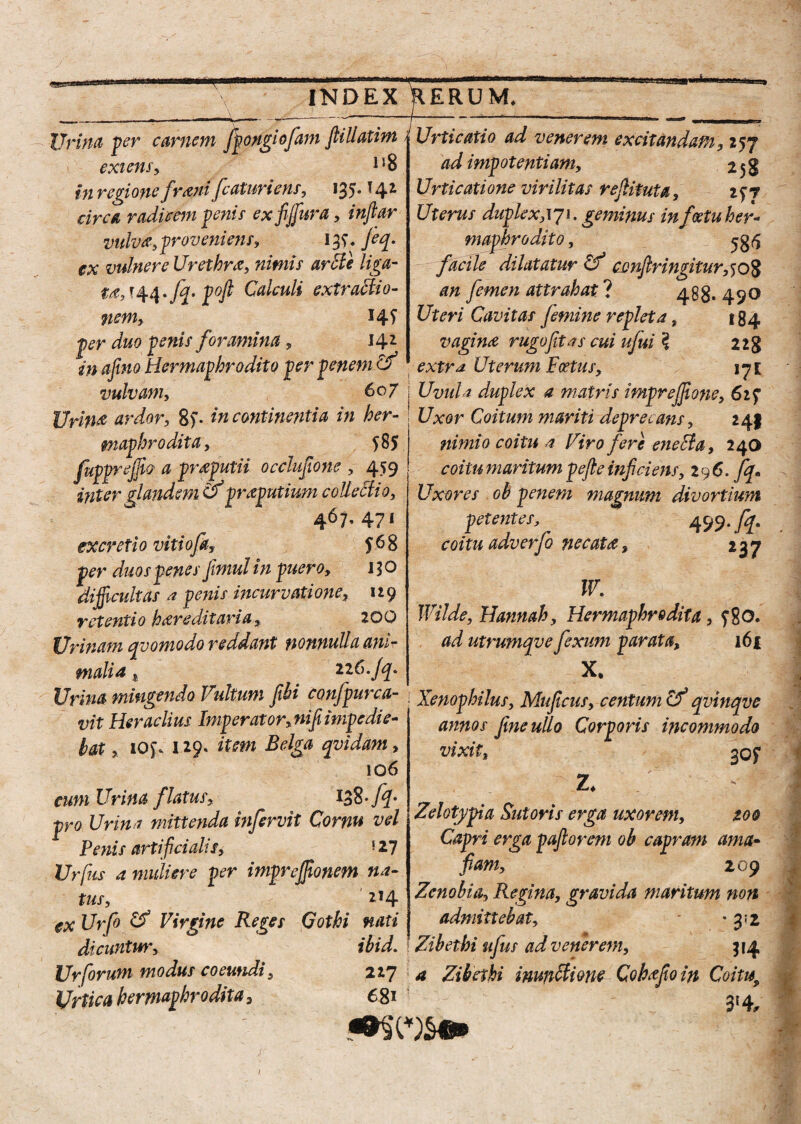 INDEX RERUM.
Urina per carnem spongiosam stillatim
exiens, 118
in regione fræni scaturiens, 135. 142
circa radicem penis ex fissura, instar
vulvæ, proveniens, 135. seq.
ex vulnere Urethræ, nimis arcte liga-
tæ, 144. sq. post Calculi extractio-
nem, 145
per duo penis foramina, 142
in asino Hermaphrodito per penem &
vulvam, 607
Urinæ ardor, 85. incontinentia in her-
maphrodita, 585
suppressio a præputii occlusione, 459
inter glandem & præputium collectio,
467. 471
excretio vitiosa, 568
per duos penes simul in puero, 130
difficultas a penis incurvatione, 129
retentio hæreditaria, 200
Urinam qvomodo reddant nonnulla ani-
malia, 226. sq.
Urina mingendo Vultum sibi conspurca-
vit Heraclius Imperator, nisi impedie-
bat, 105. 129. item Belga qvidam,
106
cum Urina flatus, 138. sq.
pro Urina mittenda inservit Cornu vel
Penis artificialis, 127
Ursus a muliere per impressionem na-
tus, 214
ex Urso & Virgine Reges Gothi nati
dicuntur, ibid.
Ursorum modus coeundi, 227
Urtica hermaphrodita, 681
Urticatio ad venerem excitandam, 257
ad impotentiam, 258
Urticatione virilitas restituta, 257
Uterus duplex, 171. geminus in fœtu her-
maphrodito, 586
facile dilatatur & constringitur, 508
an semen attrahat? 488. 490
Uteri Cavitas semine repleta, 184
vaginæ rugositas cui usui? 228
extra Uterum Fœtus, 171
Uvula duplex a matris impressione, 625
Uxor Coitum mariti deprecans, 243
nimio coitu a Viro fere enecta, 240
coitu maritum peste inficiens, 296. sq.
Uxores ob penem magnum divortium
petentes, 499. sq.
coitu adverso necatæ, 237
W.
Wilde, Hannah, Hermaphrodita, 580.
ad utrumqve sexum parata, 161
X.
Xenophilus, Musicus, centum & qvinqve
annos sine ullo Corporis incommodo
vixit, 305
Z.
Zelotypia Sutoris erga uxorem, 200
Capri erga pastorem ob capram ama-
siam, 209
Zenobia, Regina, gravida maritum non
admittebat, 312
Zibethi usus ad venerem, 314
a Zibethi inunctione Cohæsio in Coitu,
314,